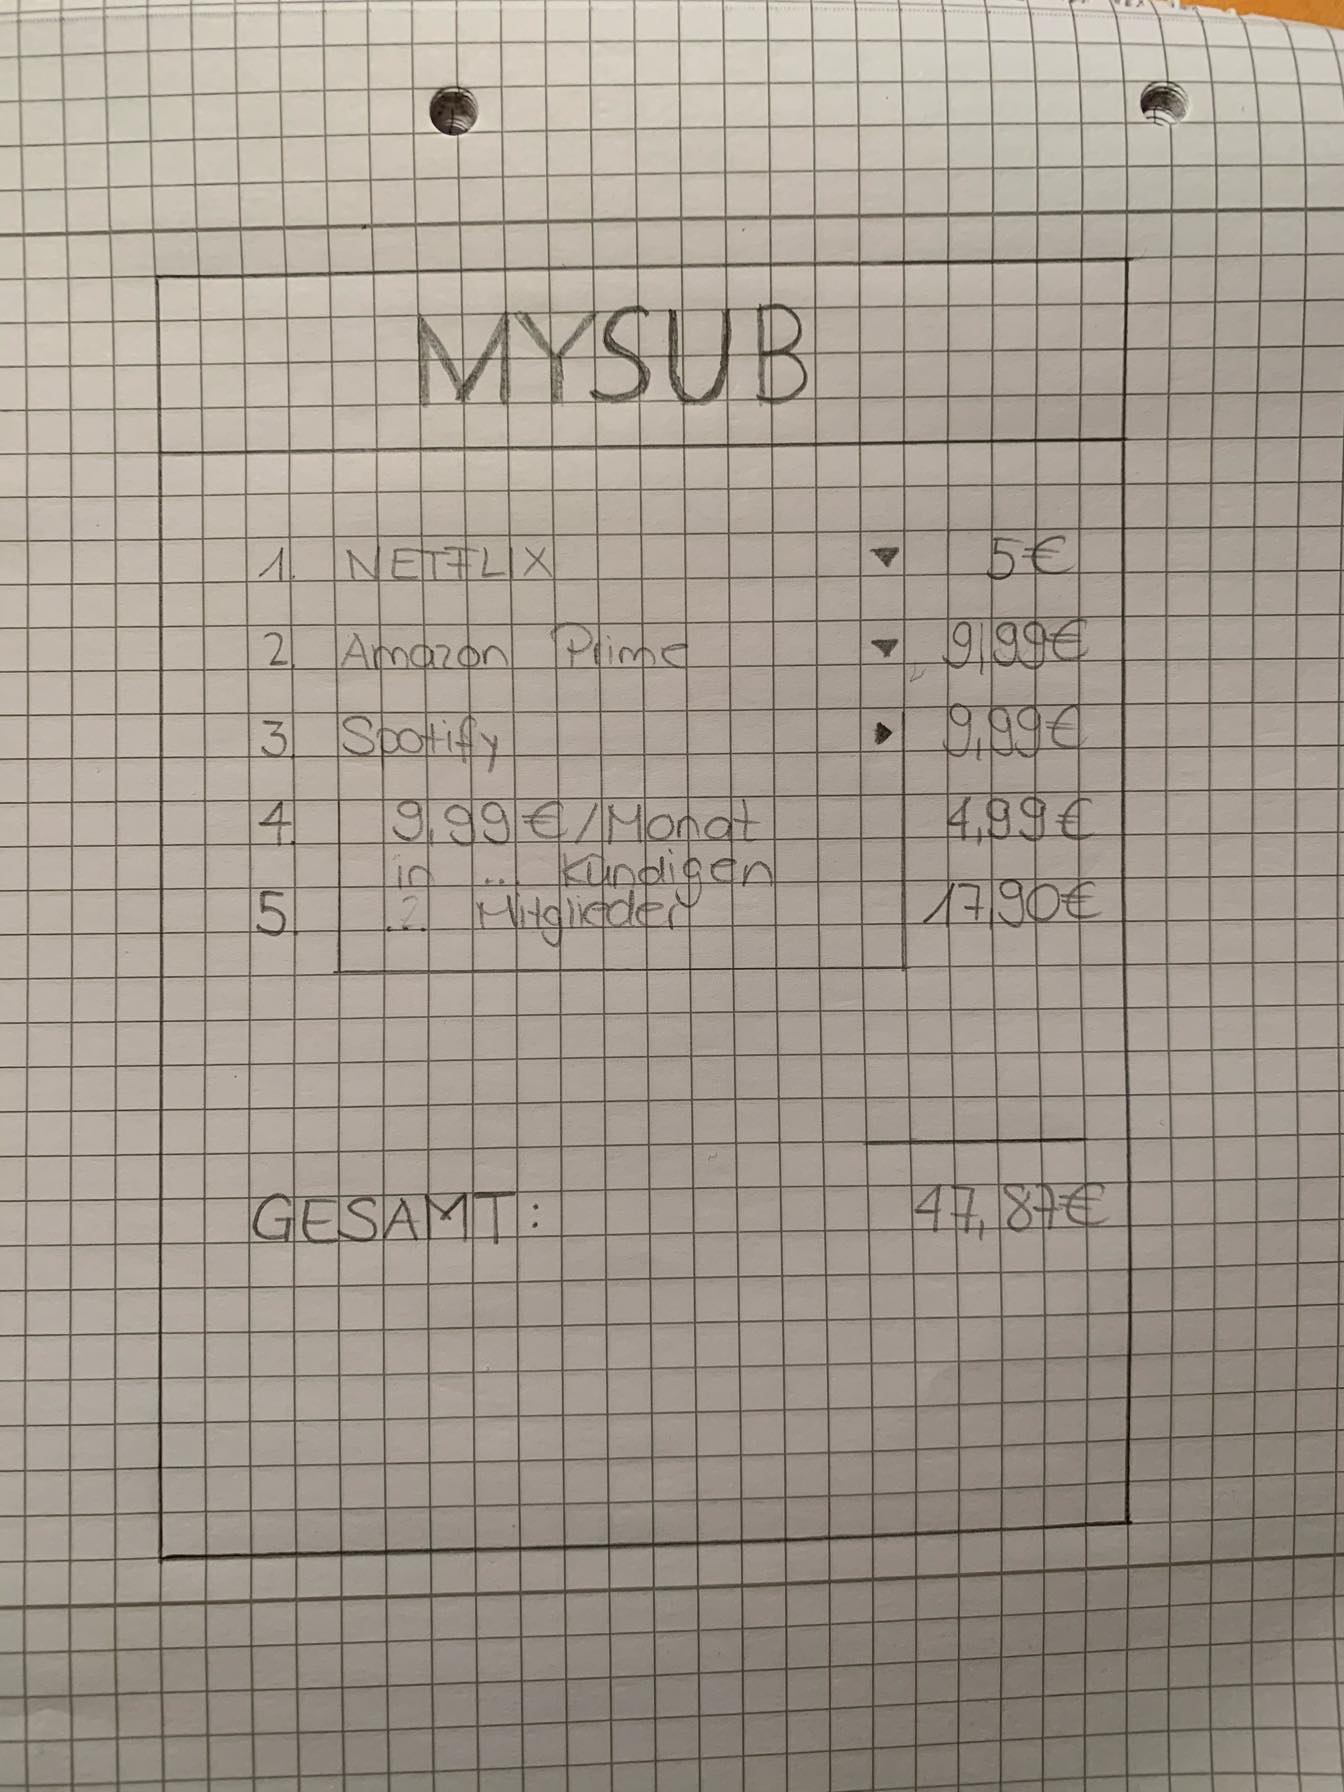 MYSUB
1. NETFLIX ▼ 5€
2. Amazon Prime ▼ 9,99€
3. Spotify ▶ 9,99€
4. 9,99€/Monat 4,99€
in ... kündigen
5. .2. Mitglieder 17,90€
GESAMT: 47,87€